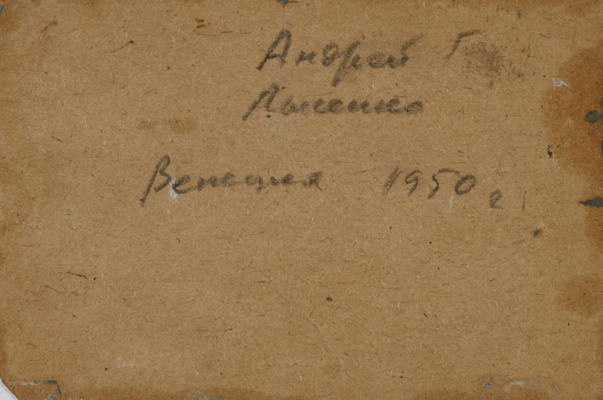 Андрей Г
Лысенко
Венеция 1950 г